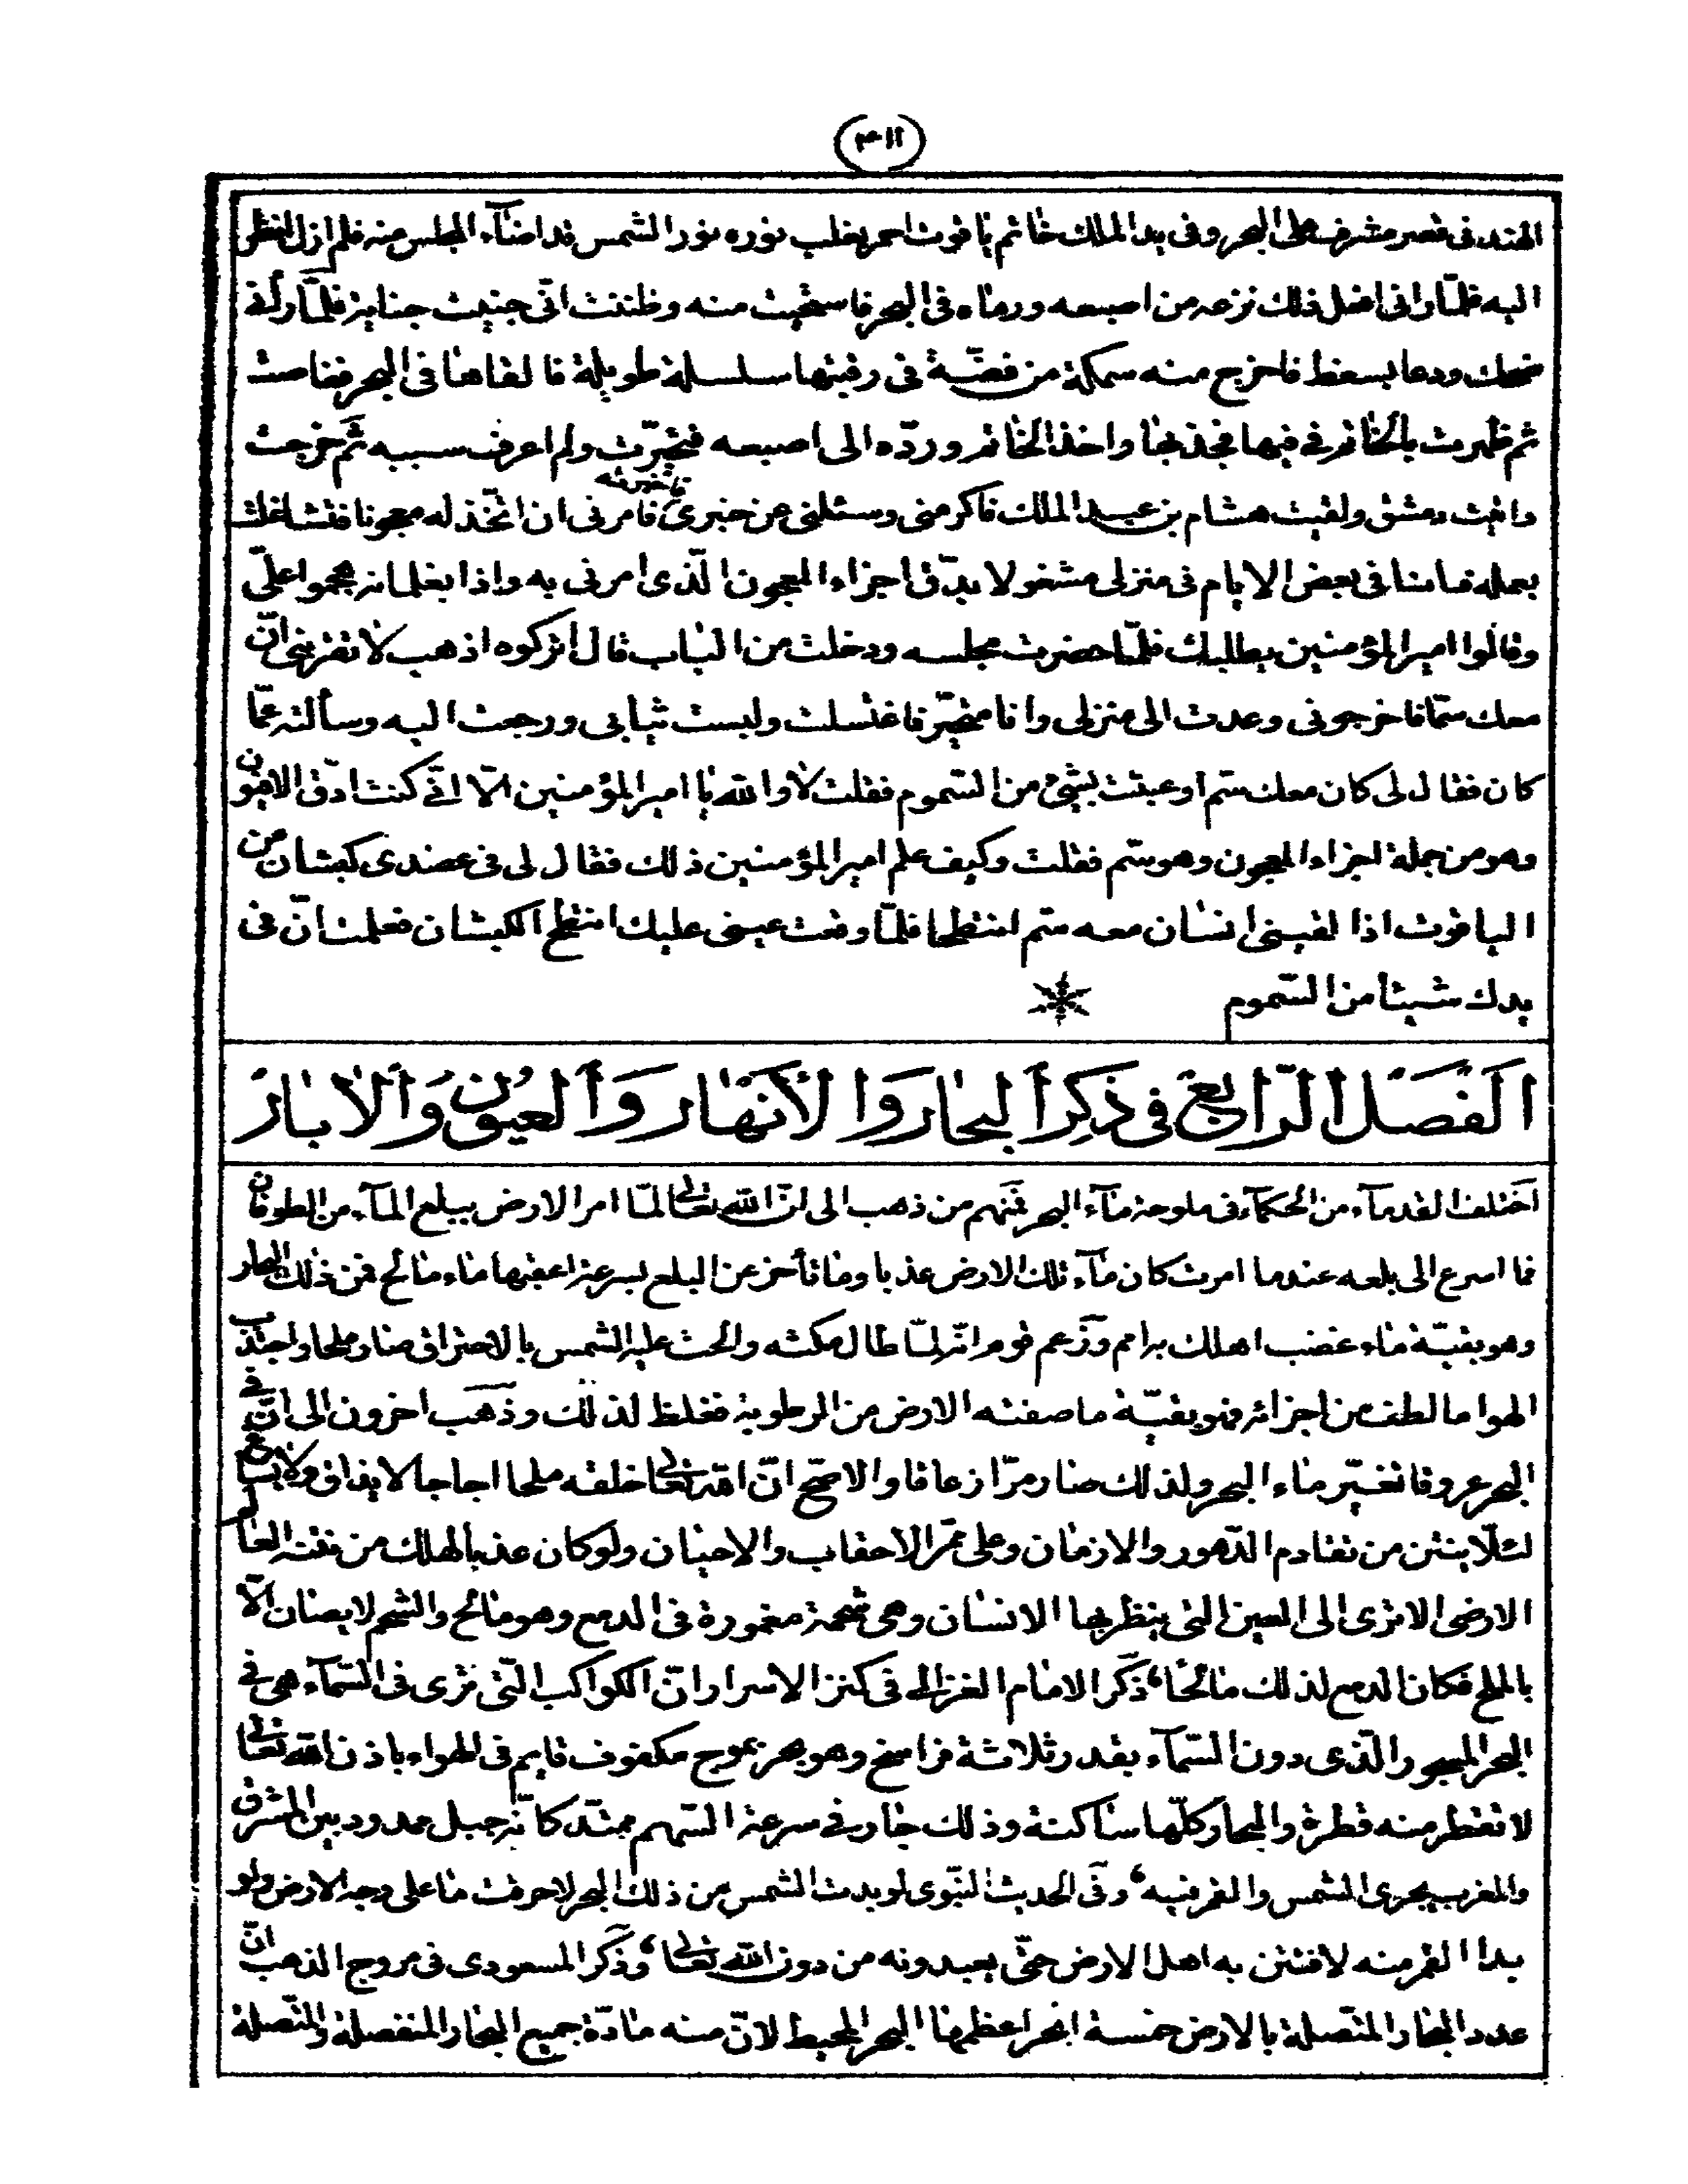 (٤١١)
الهند فى قصر مشرف على البحر وفى يد الملك خاتم ياقوت احمر يغلب نوره نور الشمس قد اضآء المجلس منه فلم ازل انظر
اليه فلمّا رانى افعل ذلك نزعه من اصبعه ورماه فى البحر فاستحييت منه وظننت انّى جنيت جناية فلمّا رأنى
ضحك ودعا بسفط فاخرج منه سمكة من فضّة فى رقبتها سلسلة طويلة فالقاها فى البحر فغاصت
ثم ظهرت بالخاتم فى فيها فجذبها واخذ الخاتم وردّه الى اصبعه فتحيّرت ولم اعرف سببه ثمّ خرجت
واتيت دمشق ولقيت هشام بن عبد الملك فاكرمنى وسئلنى عن خبرى فاخبرته فامرنى ان اتّخذ له معجونا فتشاغلت
بعمله فبينا انا فى بعض الايام فى منزلى مشغولا بدقّ اجزاء المعجون الّذى امرنى به واذا بغلمانه هجموا علىّ
وقالوا امير المؤمنين يطلبك فلمّا حضرت مجلسه ودخلت من الباب قال اتركوه اذهب لا تقربنى انّ
معك سمّا فاخرجونى وعدت الى منزلى وانا متحيّر فاغتسلت ولبست ثيابى ورجعت اليه وسألته عمّا
كان فقال لى كان معك سمّ او عبثت بشئ من السّموم فقلت لا والله يا امير المؤمنين الّا انّى كنت ادقّ الافيون
وهو من جملة اجزاء المعجون وهو سمّ فقلت وكيف علم امير المؤمنين ذلك فقال لى فى عضدى كبشان من
الياقوت اذا لقينى انسان معه سّم انتطحا فلمّا وقعت عينى عليك انتطح الكبشان فعلمت انّ فى
يدك شيئا من السّموم
اَلفَصَل الرّابِع فى ذكِر اَلبحار وَالأنهَار وَاَلعيُون وَاَلابار
اختلف القدمآء من الحكمآء فى ملوحة مآء البحر فمنهم من ذهب الى انّ الله تعالى لمّا امر الارض ببلع المآء من الطوفان
فما اسرع الى بلعه عندما امرت كان مآء تلك الارض عذبا وما تأخر عن البلع بسرعة اعقبها ماء مالح فمن ذلك البحار
وهو بقيّة ماء غضب اهلك به امم وزعم قوم انّه لمّا طال مكثه والحت عليه الشمس بالاحتراق صار ملحا واجتذب
الهوا ما لطف من اجزائه فهو بقيّة ما صفته الارض من الرطوبة فغلظ لذلك وذهب اخرون الى انّ فى
البحر عروقا تغيّر ماء البحر ولذلك صار مرّا زعاقا والاصحّ انّ الله تعالى خلقه ملحا اجاجا لا يذاق ولا يساغ
لئلّا ينتن من تقادم الدّهور والازمان وعلى ممّر الاحقاب والاحيان ولو كان عذبا لهلك من نتنه العالم
الارضى الا ترى الى العين التى ينظر بها الانسان وهى شحمة مغمورة فى الدمع وهو مالح والشحم لا يصان الّا
بالملح فكان الدمع لذلك مالحًا، ذكر الامام الغزالى فى كنز الاسرار انّ الكواكب التّى ترى فى السّمآء هى فى
البحر المسجور الّذى دون السّمآء بقدر ثلاثة فراسخ وهو بحر بموج مكفوف قايم فى الهواء باذن الله تعالى
لا تقطر منه قطرة والبحار كلّها ساكنة وذلك جار فى سرعة السّهم ممتّد كانّه جبل ممدود بين المشرق
والمغرب يجرى الشمس والقمر فيه، وفى الحديث النبّوى لو بدت الشمس من ذلك البحر لاحرقت ما على وجه الارض ولو
بدا القمر منه لافتتن به اهل الارض حتّى يعبدونه من دون الله تعالى، وذكر المسعودى فى مروج الذهب انّ
عدد البحار المتّصلة بالارض خمسة ابحر اعظمها البحر المحيط لانّ منه مادّة جميع البحار المنفصلة والمتّصلة